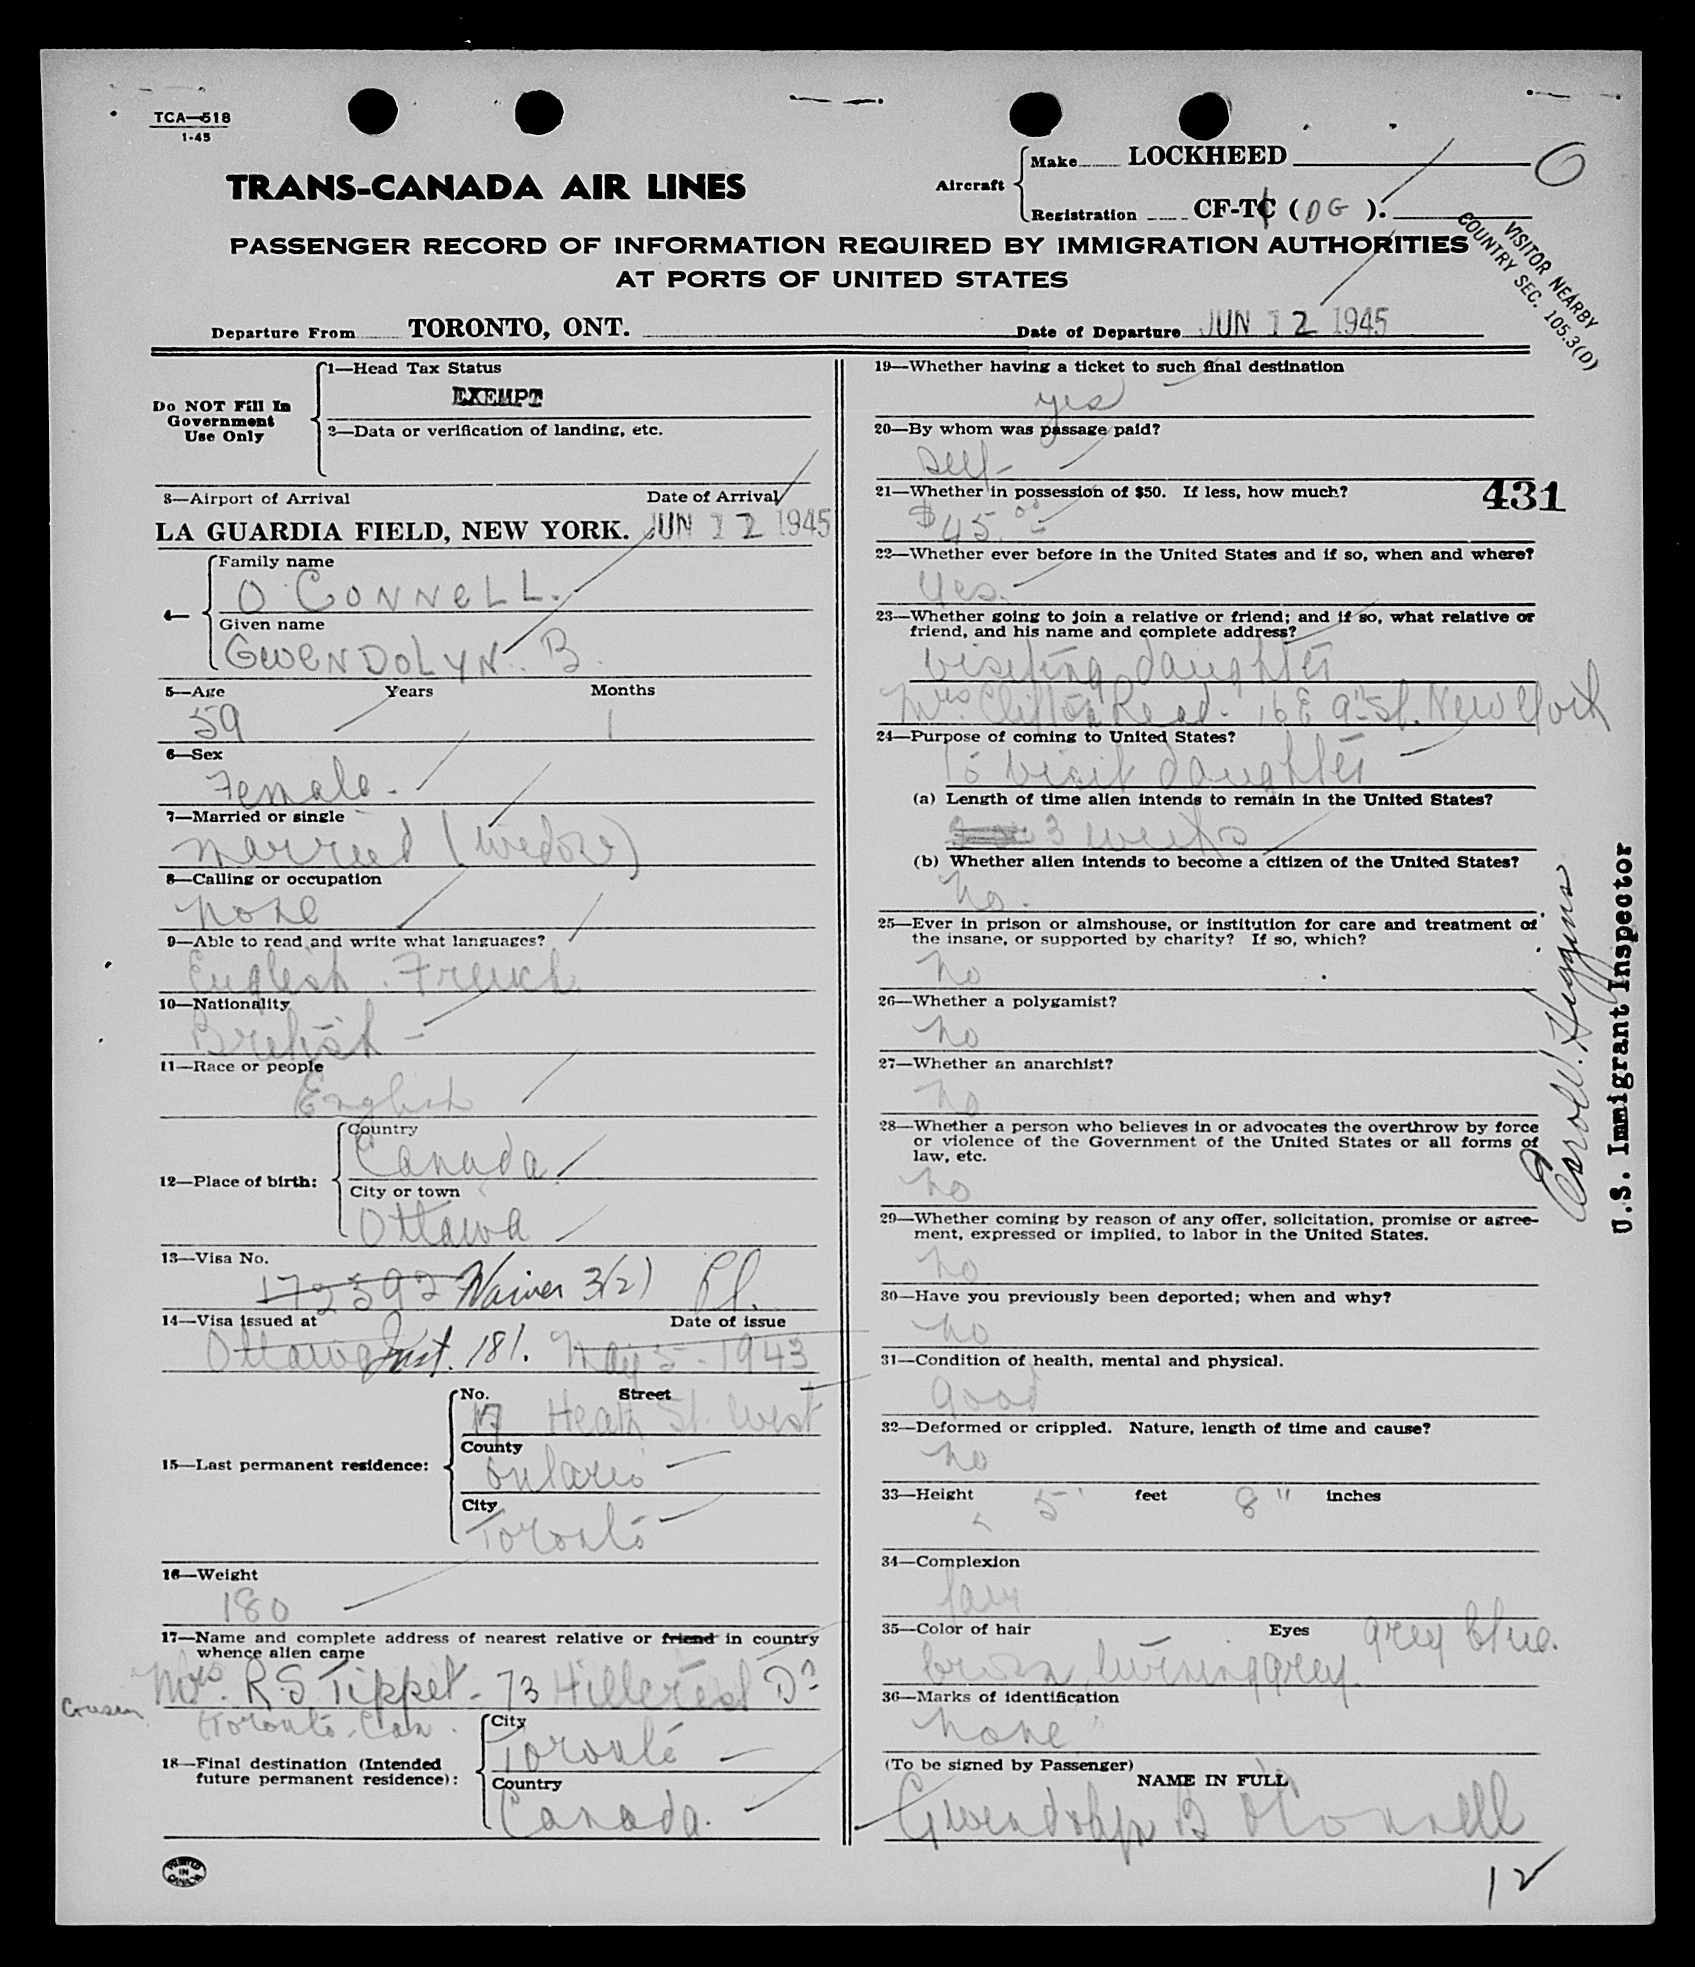 TCA—518
1-45
TRANS-CANADA AIR LINES
Aircraft
Make LOCKHEED
Registration CF-TC ( DG ).
PASSENGER RECORD OF INFORMATION REQUIRED BY IMMIGRATION AUTHORITIES
AT PORTS OF UNITED STATES
VISITOR NEARBY
COUNTRY SEC. 105.3(D)
Departure From TORONTO, ONT. Date of Departure JUN 12 1945
Do NOT Fill In
Government
Use Only
1—Head Tax Status
EXEMPT
2—Data or verification of landing, etc.
3—Airport of Arrival Date of Arrival
LA GUARDIA FIELD, NEW YORK. JUN 12 1945
4—
Family name
O'CONNELL.
Given name
GWENDOLYN. B.
5—Age Years Months
59 1
6—Sex
Female.
7—Married or single
Married (widow)
8—Calling or occupation
none
9—Able to read and write what languages?
English. French
10—Nationality
British
11—Race or people
English
12—Place of birth:
Country
Canada
City or town
Ottawa
13—Visa No.
172592 Waiver 3(2)
14—Visa issued at Date of issue
Ottawa Inst. 181. May 5 - 1943
15—Last permanent residence:
No. Street
17 Heath St. West
County
Ontario
City
Toronto
16—Weight
180
17—Name and complete address of nearest relative or friend in country
whence alien came
Mrs. R.S. Tippet - 73 Hillcrest Dr
Cousin Toronto - Can.
18—Final destination (Intended
future permanent residence):
City
Toronto
Country
Canada.
PRINTED
IN
CANADA
19—Whether having a ticket to such final destination
yes
20—By whom was passage paid?
self
21—Whether in possession of $50. If less, how much?
431
$45.00
22—Whether ever before in the United States and if so, when and where?
Yes.
23—Whether going to join a relative or friend; and if so, what relative or
friend, and his name and complete address?
visiting daughter
Mrs. Clifton Read - 16 E 9th St. New York
24—Purpose of coming to United States?
To visit daughter
(a) Length of time alien intends to remain in the United States?
3 weeks
(b) Whether alien intends to become a citizen of the United States?
No.
25—Ever in prison or almshouse, or institution for care and treatment of
the insane, or supported by charity? If so, which?
No
26—Whether a polygamist?
No
27—Whether an anarchist?
No
28—Whether a person who believes in or advocates the overthrow by force
or violence of the Government of the United States or all forms of
law, etc.
No
29—Whether coming by reason of any offer, solicitation, promise or agree-
ment, expressed or implied, to labor in the United States.
No
30—Have you previously been deported; when and why?
No
31—Condition of health, mental and physical.
Good
32—Deformed or crippled. Nature, length of time and cause?
No
33—Height 5' feet 8" inches
34—Complexion
fair
35—Color of hair Eyes grey blue.
brown turning grey.
36—Marks of identification
None
(To be signed by Passenger)
NAME IN FULL
Gwendolyn B O'Connell
12
Higgins
U.S. Immigrant Inspector